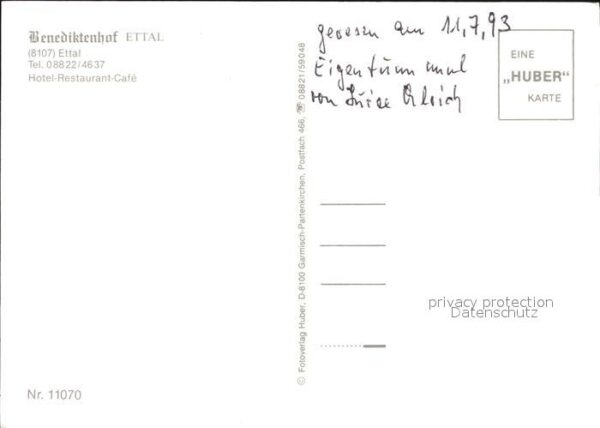 Benediktenhof ETTAL
(8107) Ettal
Tel. 08822/4637
Hotel-Restaurant-Café
gewesen am 11,7,93
Eigentum mal
von Luise
EINE
„HUBER"
KARTE
© Fotoverlag Huber, D-8100 Garmisch-Partenkirchen, Postfach 466, ☎ 08821/59048
privacy protection
Datenschutz
Nr. 11070